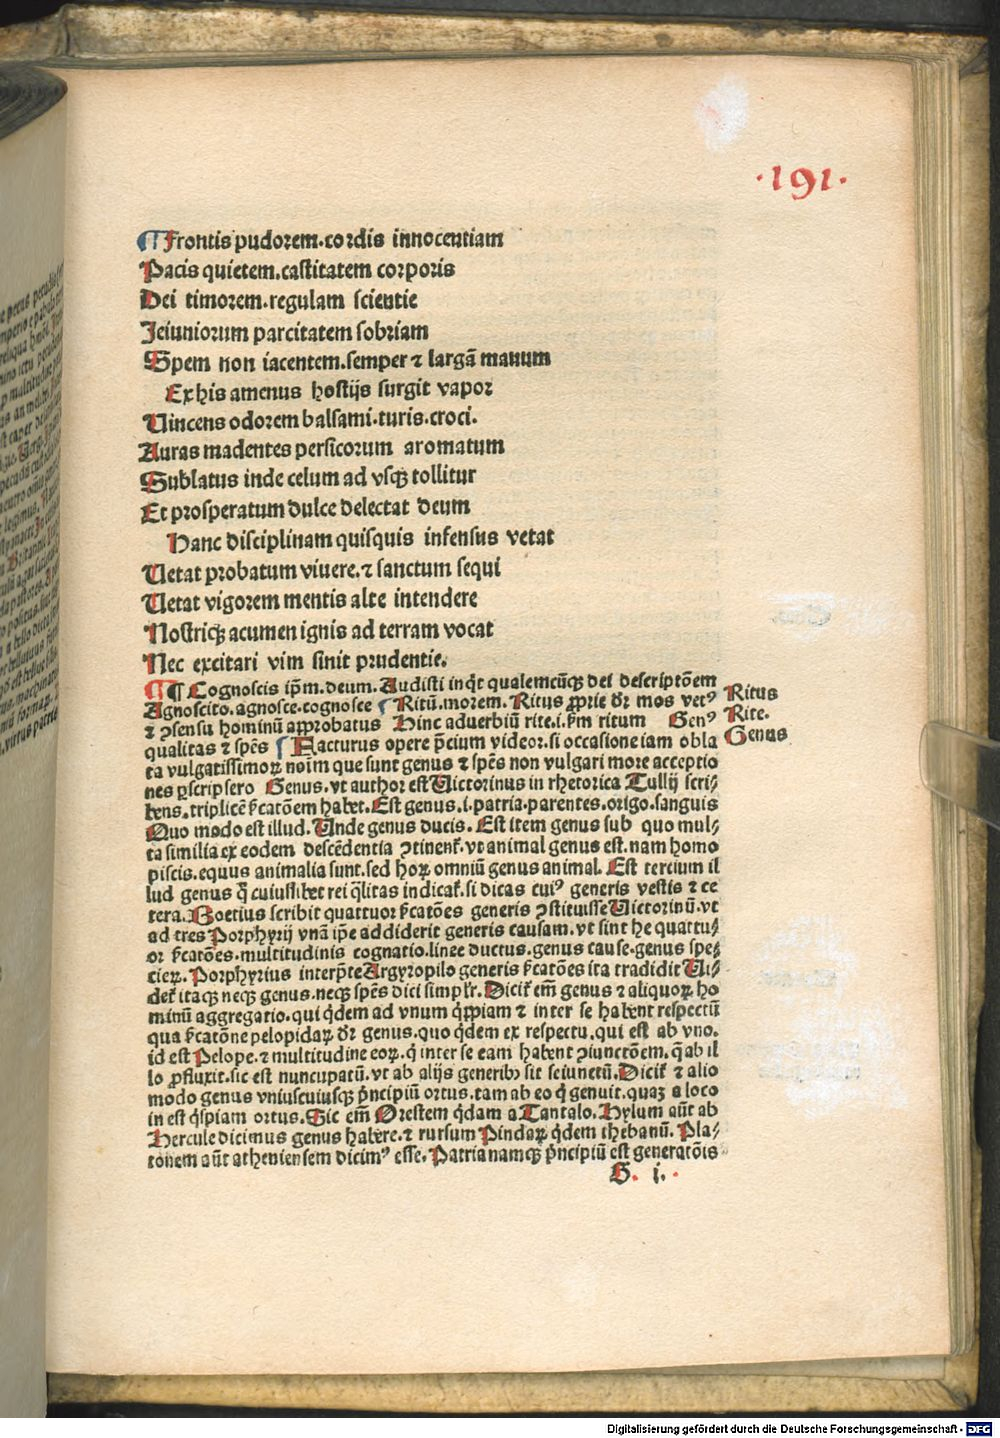 ·191·
¶ Frontis pudorem.cordis innocentiam
Pacis quietem.castitatem corporis
Dei timorem.regulam scientie
Ieiuniorum parcitatem sobriam
Spem non iacentem.semper ⁊ largā manum
Ex his amenus hostijs surgit vapor
Uincens odorem balsami.turis.croci.
Auras madentes persicorum aromatum
Sublatus inde celum ad vsqꝫ tollitur
Et prosperatum dulce delectat deum
Hanc disciplinam quisquis infensus vetat
Uetat probatum viuere.⁊ sanctum sequi
Uetat vigorem mentis alte intendere
Nostriqꝫ acumen ignis ad terram vocat
Nec excitari vim sinit prudentie.
¶ ¶ Cognoscis ip̄m.deum.Audisti inq̄t qualemcūqꝫ dei descriptōem
Agnoscito.agnosce.cognosce ¶ Ritū.morem.Ritus ꝓprie dr̄ mos vetꝰ
⁊ ꝯsensu hominū approbatus Hinc aduerbiū rite.i.ẜm ritum Genꝰ
qualitas ⁊ sp̄es ¶ Facturus opere p̄cium videor.si occasione iam obla
ta vulgatissimoꝝ noīm que sunt genus ⁊ sp̄es non vulgari more acceptio
nes ꝑscripsero Genus.vt author est Uictorinus in rhetorica Tullij scri⸗
bens.triplicē ẜcatōem habet.Est genus.i.patria.parentes.origo.sanguis
Quo modo est illud.Unde genus ducis.Est item genus sub quo mul⸗
ta similia ex eodem descēdentia ꝯtinenť.vt animal genus est.nam homo
piscis.equus animalia sunt.sed hoꝝ omniū genus animal.Est tercium il
lud genus q̄ cuiuslibet rei q̄litas indicať.si dicas cuiꝰ generis vestis ⁊ ce
tera.Boetius scribit quattuor ẜcatōes generis ꝯstituisse Uictorinū.vt
ad tres Porphyrij vnā ip̄e addiderit generis causam.vt sint he quattu⸗
or ẜcatōes.multitudinis cognatio.linee ductus.genus cause.genus spe⸗
cieꝝ.Porphyrius interp̄te Argyropilo generis ẜcatōes ita tradidit Ui⸗
deť itaqꝫ neqꝫ genus.neqꝫ sp̄es dici simpľr.Diciť em̄ genus ⁊ aliquoꝝ ho
minū aggregatio.qui q̄dem ad vnum q̄ppiam ⁊ inter se habent respectū
qua ẜcatōne pelopidaꝝ dr̄ genus.quo q̄dem ex respectu.qui est ab vno.
id est Pelope.⁊ multitudine eoꝝ.q̄ inter se eam habent ꝯiunctōem.q̄ ab il
lo ꝓfluxit.sic est nuncupatū.vt ab alijs generibꝫ sit seiunctū.Diciť ⁊ alio
modo genus vniuscuiusqꝫ p̄ncipiū ortus.tam ab eo q̄ genuit.quaꝫ a loco
in est q̄spiam ortus.Sic em̄ Orestem q̄dam a Tantalo.Hylum aūt ab
Hercule dicimus genus habere.⁊ rursum Pindaꝝ q̄dem thebanū.Pla⸗
tonem aūt atheniensem dicimꝰ esse.Patria namqꝫ p̄ncipiū est generatōis
Ritus
Rite.
Genus
G. i.
Digitalisierung gefördert durch die Deutsche Forschungsgemeinschaft - DFG